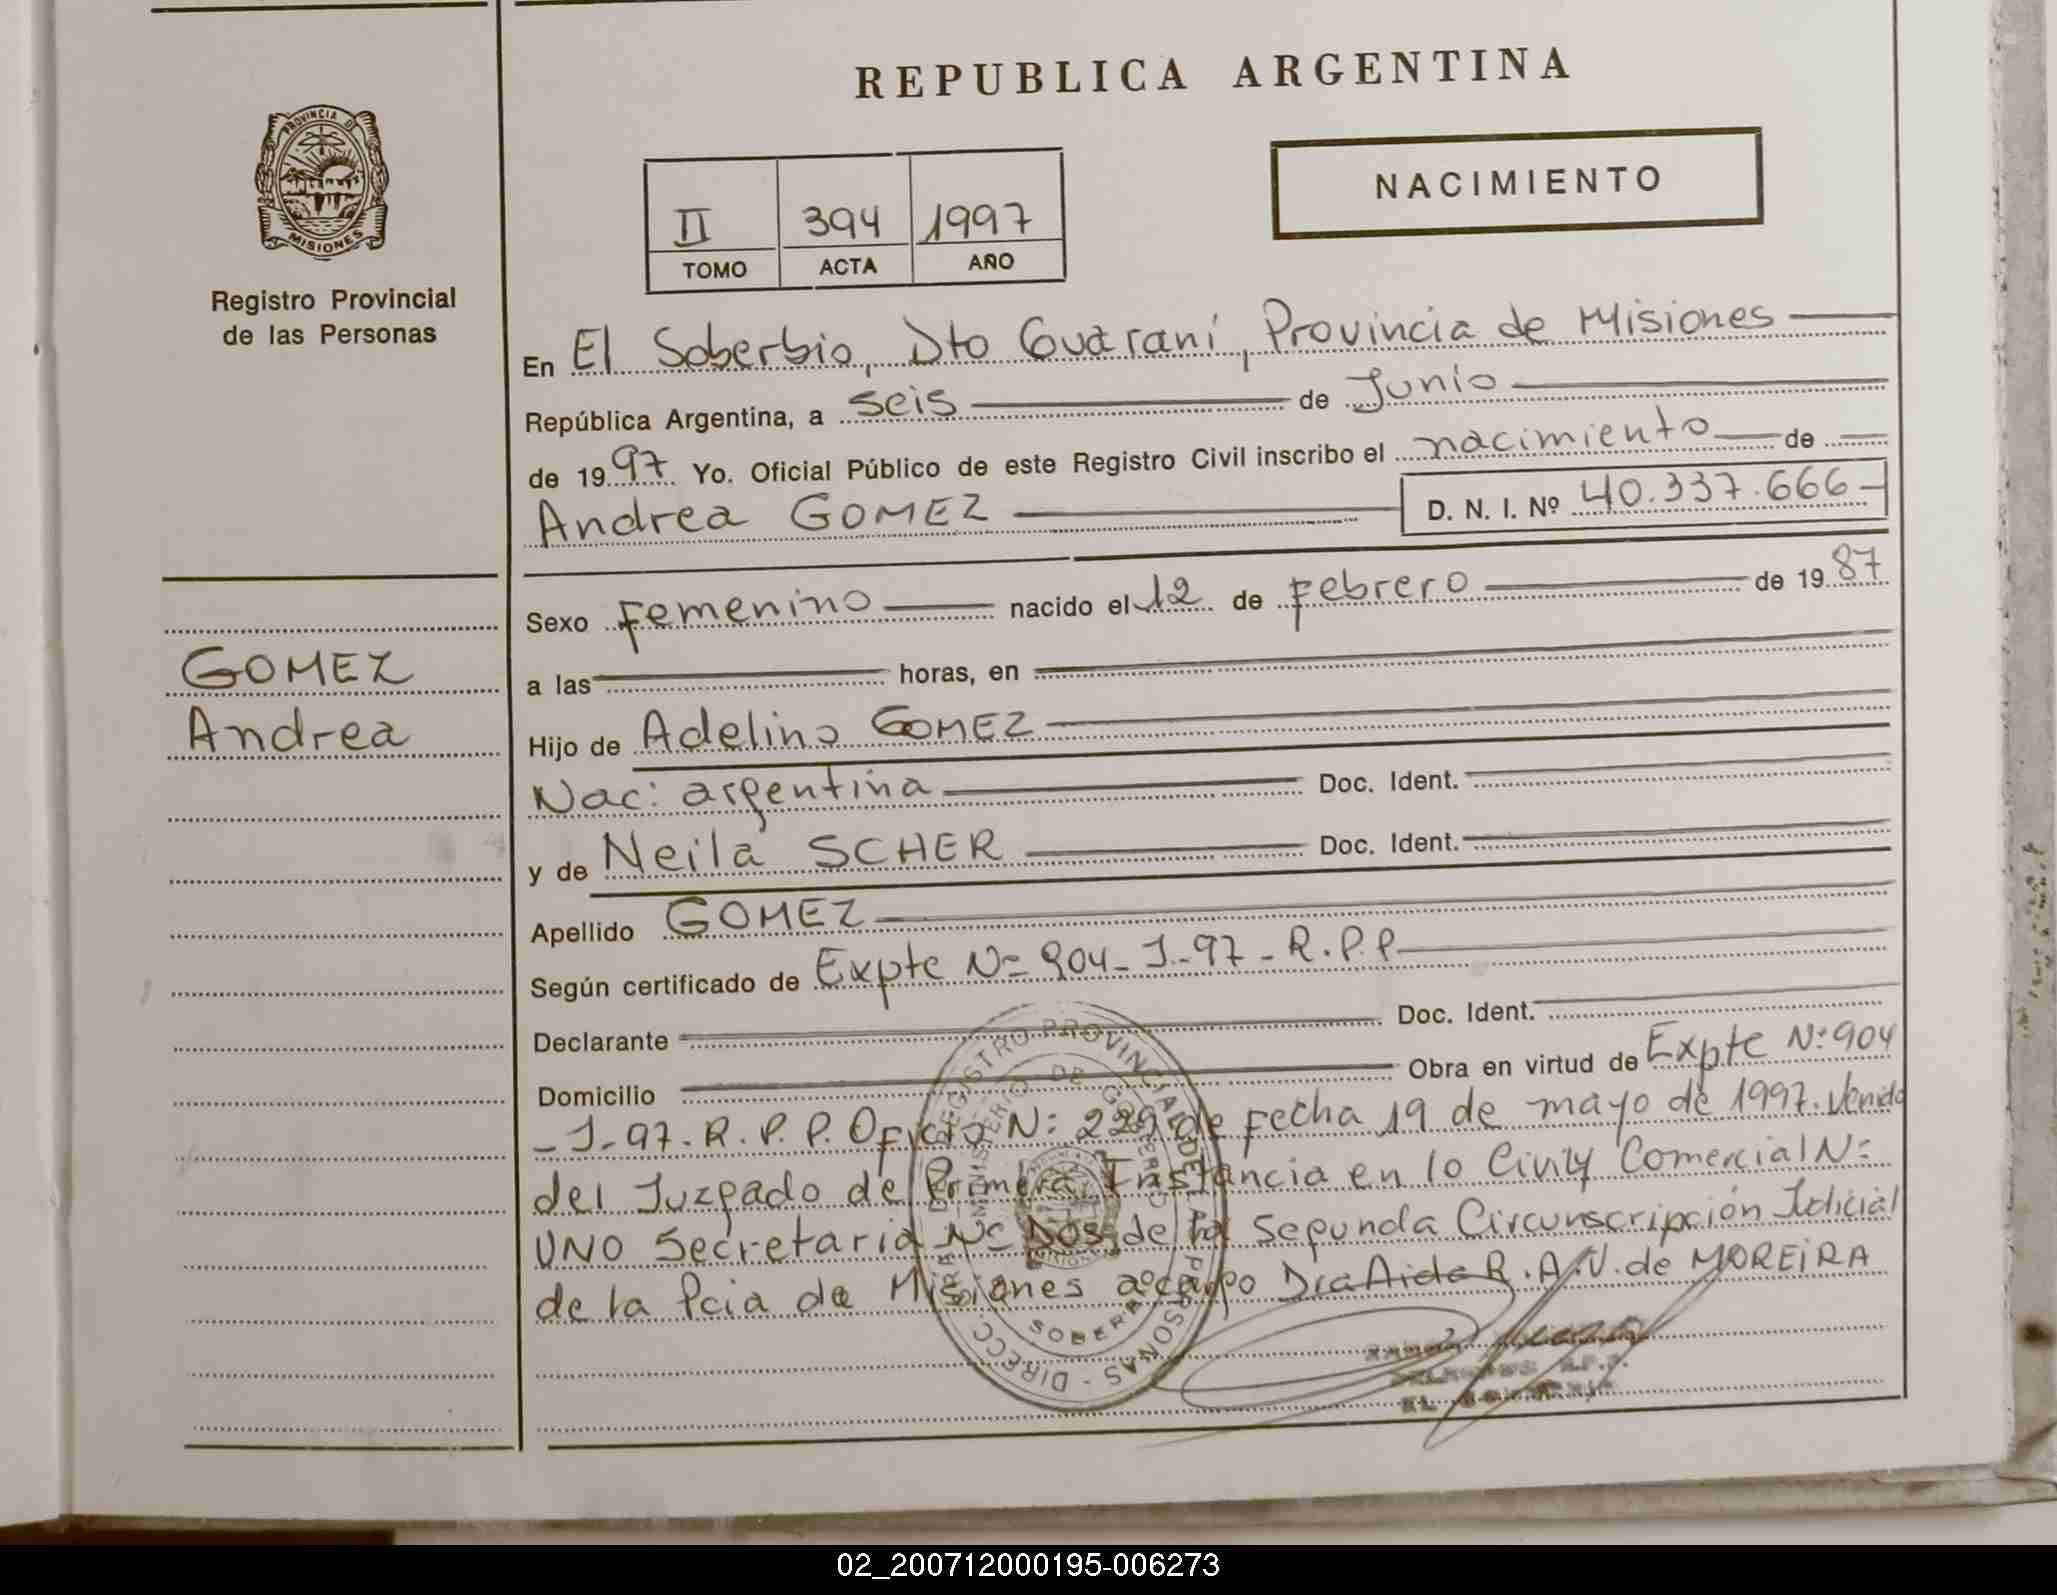 REPUBLICA ARGENTINA
PROVINCIA DE
MISIONES
Registro Provincial
de las Personas
NACIMIENTO
II 394 1997
TOMO ACTA AÑO
En El Soberbio, Dto Guaraní, Provincia de Misiones
República Argentina, a seis de Junio
de 1997 Yo. Oficial Público de este Registro Civil inscribo el nacimiento de
Andrea GOMEZ D. N. I. Nº 40.337.666
Sexo Femenino nacido el 12 de Febrero de 1987
GOMEZ
Andrea
a las horas, en
Hijo de Adelino GOMEZ
Nac: argentina Doc. Ident.
y de Neila SCHER Doc. Ident.
Apellido GOMEZ
Según certificado de Expte Nº 904-J-97-R.P.P
Declarante Doc. Ident.
Domicilio Obra en virtud de Expte Nº 904
-J-97.R.P.P. Oficio Nº 229 de Fecha 19 de mayo de 1997. Venido
del Juzgado de Primera Instancia en lo Civil y Comercial Nº
UNO Secretaria Nº Dos de la Segunda Circunscripción Judicial
de la Pcia de Misiones a cargo Dra Aida R.A.V. de MOREIRA
DIRECC. GRAL. DE REGISTRO PROVINCIAL DE LAS PERSONAS
MINISTERIO DE GOBIERNO
02_200712000195-006273